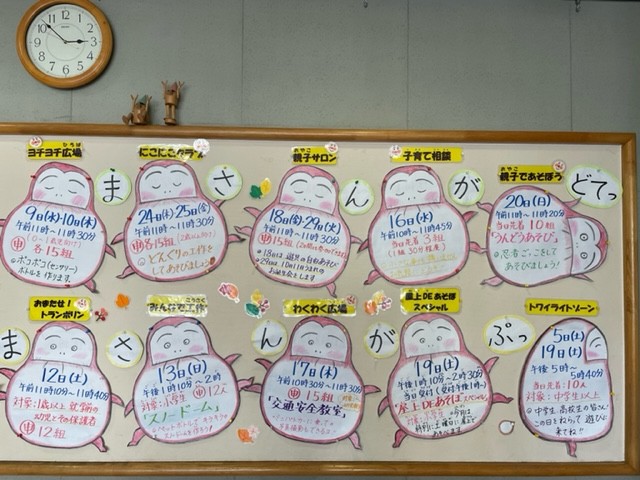 ヨチヨチ広場
ひろば
9日(水)・10日(木)
午前11時〜11時30分
申
各15組
にこにこクラブ
24日(木) 25日(金)
午前11時〜11時30分
申 各15組
どんぐりの工作を
してあそびましょう
おやこ
親子サロン
18日(金)・29日(火)
午前11時〜11時30分
申 15組
お誕生会をします
子育て相談
16日(水)
午前10時〜11時45分
当日先着 3組
(1組30分程度)
おやこ
親子であそぼう
20日(日)
午前11時〜11時20分
当日先着 10組
「うんどうあそび」
忍者ごっこをして
あそびましょう!
まさんがどてっ
おまたせ!
トランポリン
12日(土)
午前11時10分〜11時40分
対象:1歳以上 就学前の
幼児とその保護者
申 12組
みんなで工作
こうさく
13日(日)
午後1時10分〜2時
対象:小学生 申 12人
「スノードーム」
わくわく広場
17日(木)
午前10時30分〜11時30分
申 15組
「交通安全教室」
屋上DEあそぼ
スペシャル
19日(土)
午後1時10分〜2時30分
当日受付(受付午後1時〜)
「屋上DEあそぼスペシャル」
対象:小学生
トワイライトゾーン
5日(土)
19日(土)
午後5時〜
5時40分
当日先着:10人
対象:中学生以上
中学生、高校生の皆さん!
この日をねらって 遊びに
来てね!!
まさんがぷっ